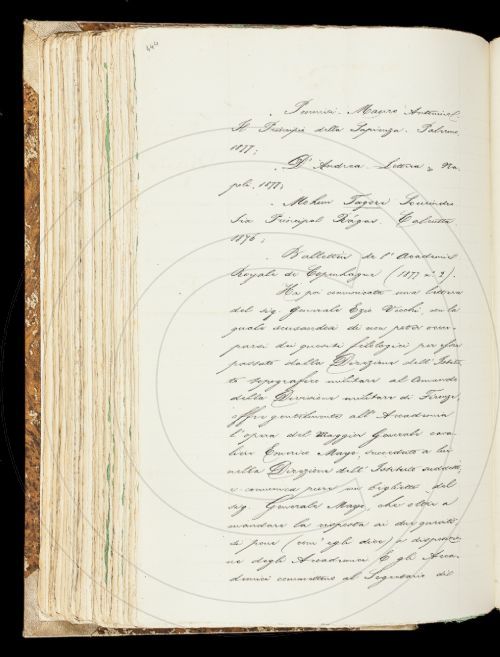 Mauro Antonino
Il Principio della Sapienza. Palermo,
1877;
D'Andrea - Lettera, Na-
poli, 1877;
Mohun Tagore Sourindro
Six Principal Rágas. Calcutta
1876;
Bulletin de l'Academie
Royale de Copenhague (1877 n. 2).
Ha poi comunicata una lettera
del sig. Generale Ezio Vecchi, nella
quale scusandosi di non poter occu-
parsi dei quesiti filologici per esser
passato dalla Direzione dell'Istitu-
to topografico militare al Comando
della Divisione militare di Firenze,
offre gentilmente all'Accademia
l'opera del Maggior Generale cava-
lier Enrico Mayo, succeduto a lui
nella Direzione dell'Istituto suddetto,
e comunica pure un biglietto del
sig. Generale Mayo, che oltre a
mandare la risposta ai
si pone (com'egli dice) a disposizio-
ne degli Accademici. E gli Acca-
demici commettono al Segretario di